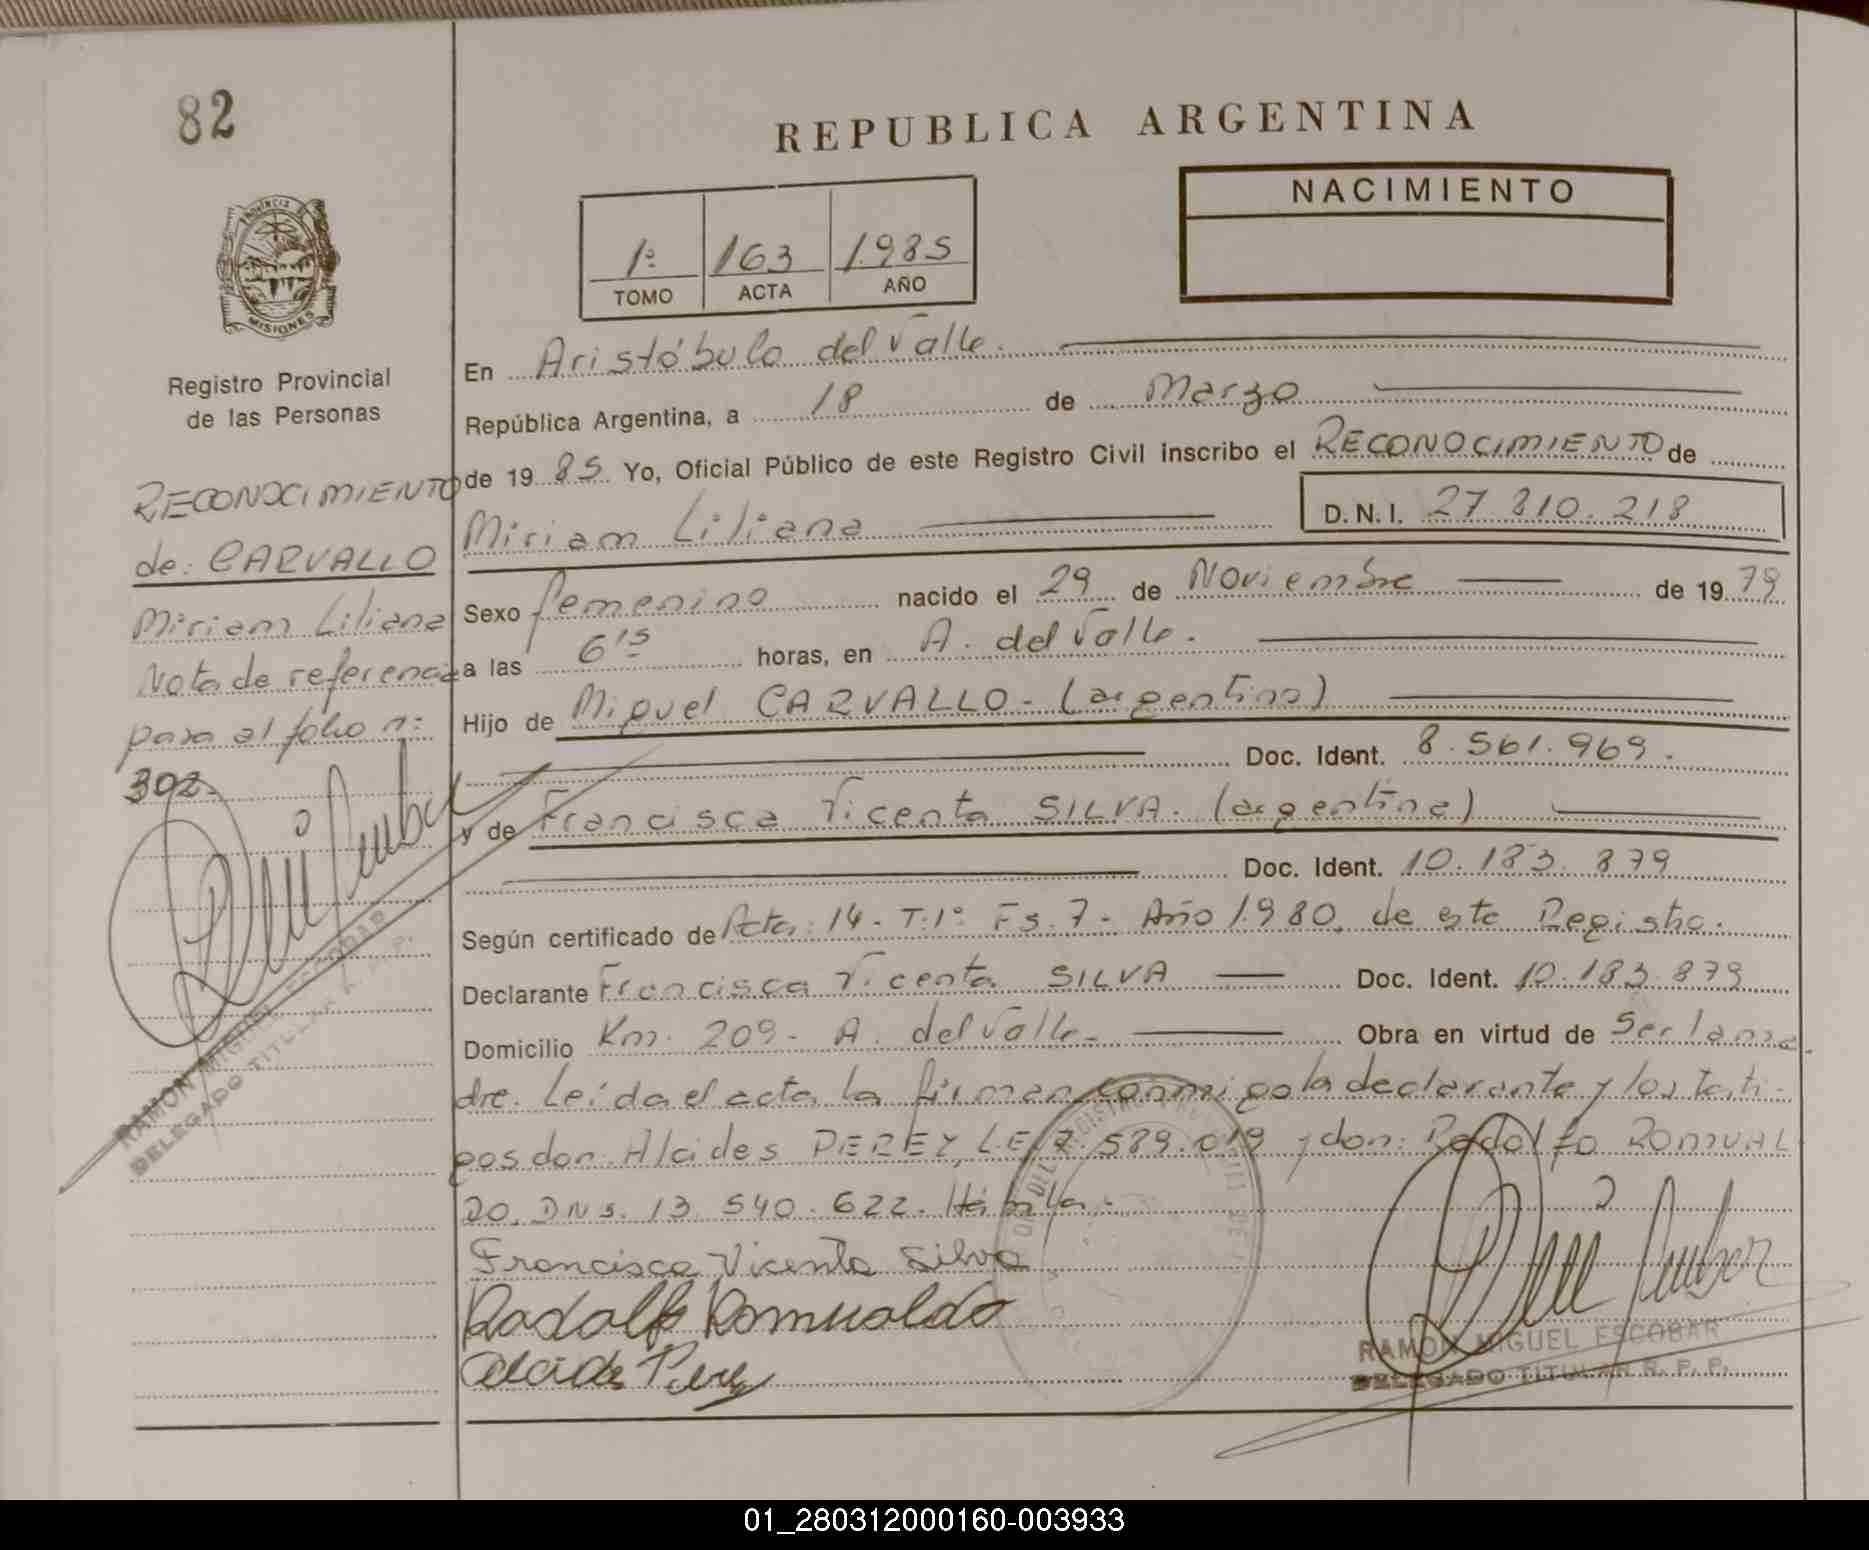 82
REPUBLICA ARGENTINA
NACIMIENTO
1º 163 1985
TOMO ACTA AÑO
PROVINCIA
MISIONES
Registro Provincial
de las Personas
RECONOCIMIENTO
de: CARVALLO
Miriam Liliana
Nota de referencia
pasa al folio n:
302.
RAMON MIGUEL ESCOBAR
DELEGADO TITULAR R. P. P.
En Aristóbulo del Valle.
República Argentina, a 18 de Marzo
de 19 85 Yo, Oficial Público de este Registro Civil inscribo el RECONOCIMIENTO de
Miriam Liliana D.N.I. 27 810.218
Sexo femenino nacido el 29 de Noviembre de 19 79
a las 6 15 horas, en A. del Valle.
Hijo de Miguel CARVALLO - (argentino)
Doc. Ident. 8.561.969.
y de Francisca Vicenta SILVA. (argentina)
Doc. Ident. 10.183.879
Según certificado de Acta: 14 - T.1º Fs. 7 - Año 1.980, de este Registro.
Declarante Francisca Vicenta SILVA Doc. Ident. 10.183.879
Domicilio Km. 209 - A. del Valle - Obra en virtud de Ser la ma
dre. Leída el acta la firman conmigo la declarante y los testi-
gos don. Alcides PEREZ, LE 7.589.019 y don: Rodolfo ROMUAL
DO. DNs. 13 540.622.
Francisca Vicenta Silva
Rodolfo Romualdo
Alcides Perez
RAMON MIGUEL ESCOBAR
DELEGADO TITULAR R. P. P.
01_280312000160-003933